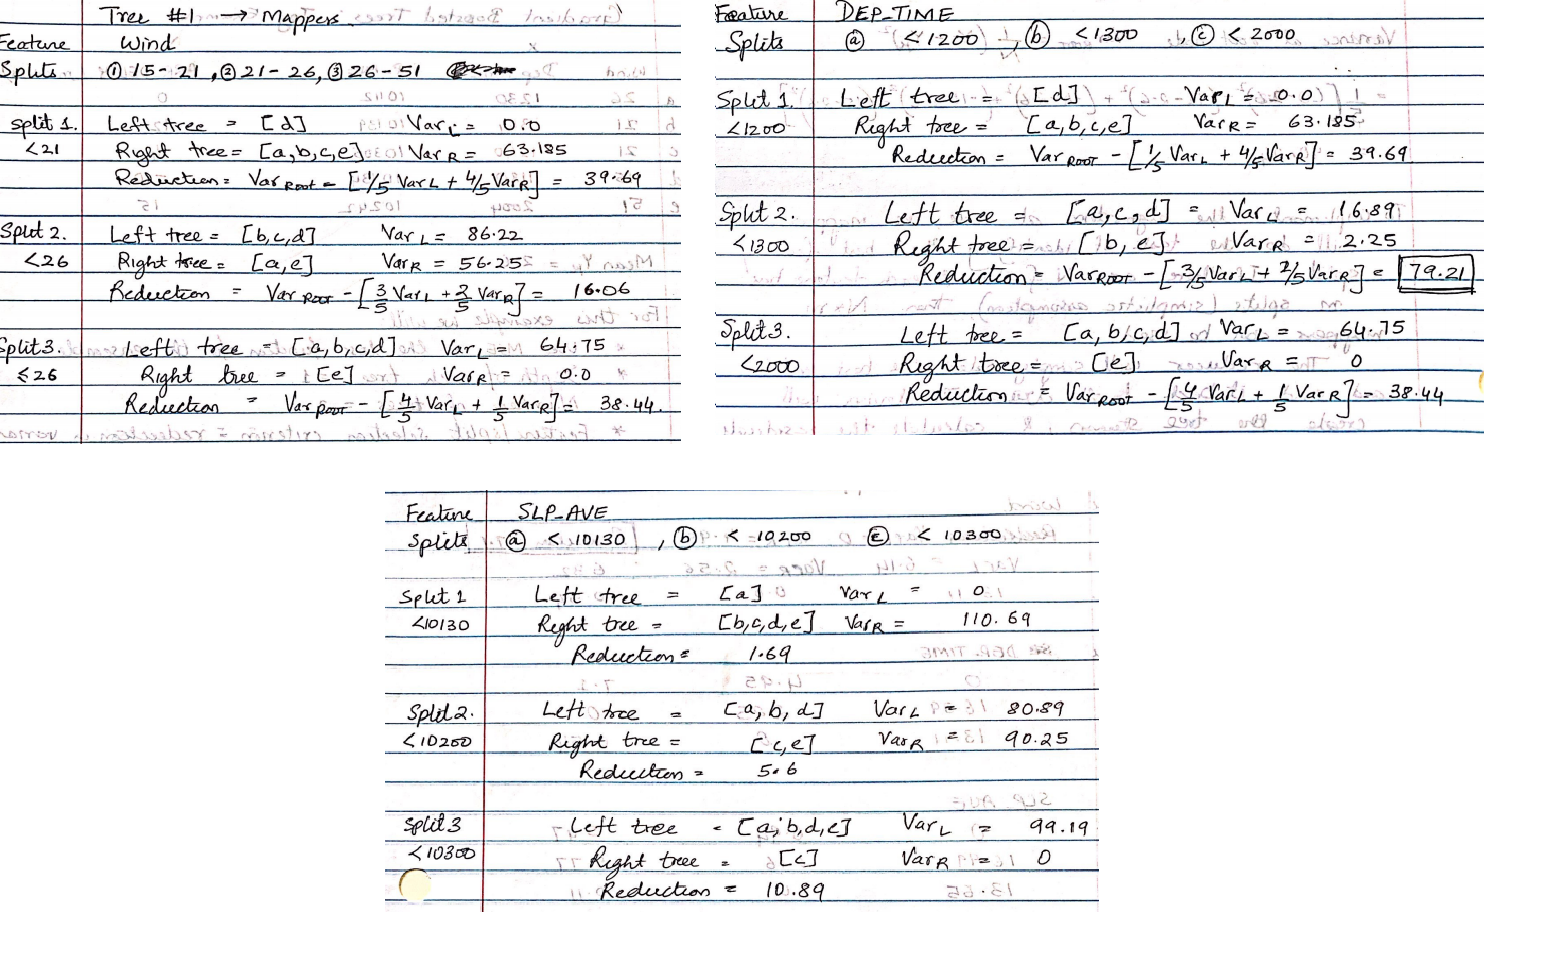 Tree #1 → Mappers
Feature Wind
Splits ① 15-21, ② 21-26, ③ 26-51
Split 1. Left tree = [d] Var L = 0.0
<21 Right tree = [a,b,c,e] Var R = 63.185
Reduction = Var Root - [1/5 Var L + 4/5 Var R] = 39.69
Split 2. Left tree = [b,c,d] Var L = 86.22
<26 Right tree = [a,e] Var R = 56.25
Reduction = Var Root - [3/5 Var L + 2/5 Var R] = 16.06
Split 3. Left tree = [a,b,c,d] Var L = 64.75
≤26 Right tree = [e] Var R = 0.0
Reduction = Var Root - [4/5 Var L + 1/5 Var R] = 38.44
Feature DEP_TIME
Splits ⓐ <1200, ⓑ <1300, ⓒ <2000
Split 1. Left tree = [d] Var L = 0.0
<1200 Right tree = [a,b,c,e] Var R = 63.185
Reduction = Var ROOT - [1/5 Var L + 4/5 Var R] = 39.69
Split 2. Left tree = [a,c,d] = Var L = 16.89
<1300 Right tree = [b,e] Var R = 2.25
Reduction = Var ROOT - [3/5 Var L + 2/5 Var R] = 79.21
Split 3. Left tree = [a,b,c,d] Var L = 64.75
<2000 Right tree = [e] Var R = 0
Reduction = Var ROOT - [4/5 Var L + 1/5 Var R] = 38.44
Feature SLP_AVE
Splits ⓐ <10130, ⓑ <10200 ⓒ <10300
Split 1 Left tree = [a] Var L = 0
<10130 Right tree = [b,c,d,e] Var R = 110.69
Reduction = 1.69
Split 2. Left tree = [a,b,d] Var L = 80.89
<10200 Right tree = [c,e] Var R = 90.25
Reduction = 5.6
Split 3 Left tree = [a,b,d,e] Var L = 99.19
<10300 Right tree = [c] Var R = 0
Reduction = 10.89